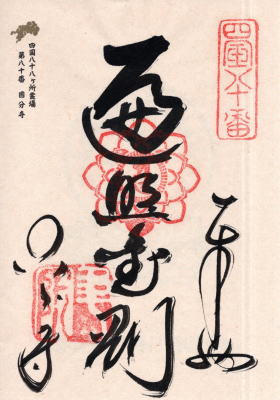 四國八十番
奉拝
遍照金剛
国分寺
四国八十八ヶ所霊場
第八十番 国分寺